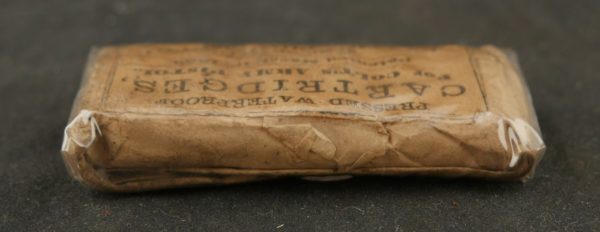 PRESSED WATERPROOF
CARTRIDGES,
FOR COLT'S ARMY PISTOL,